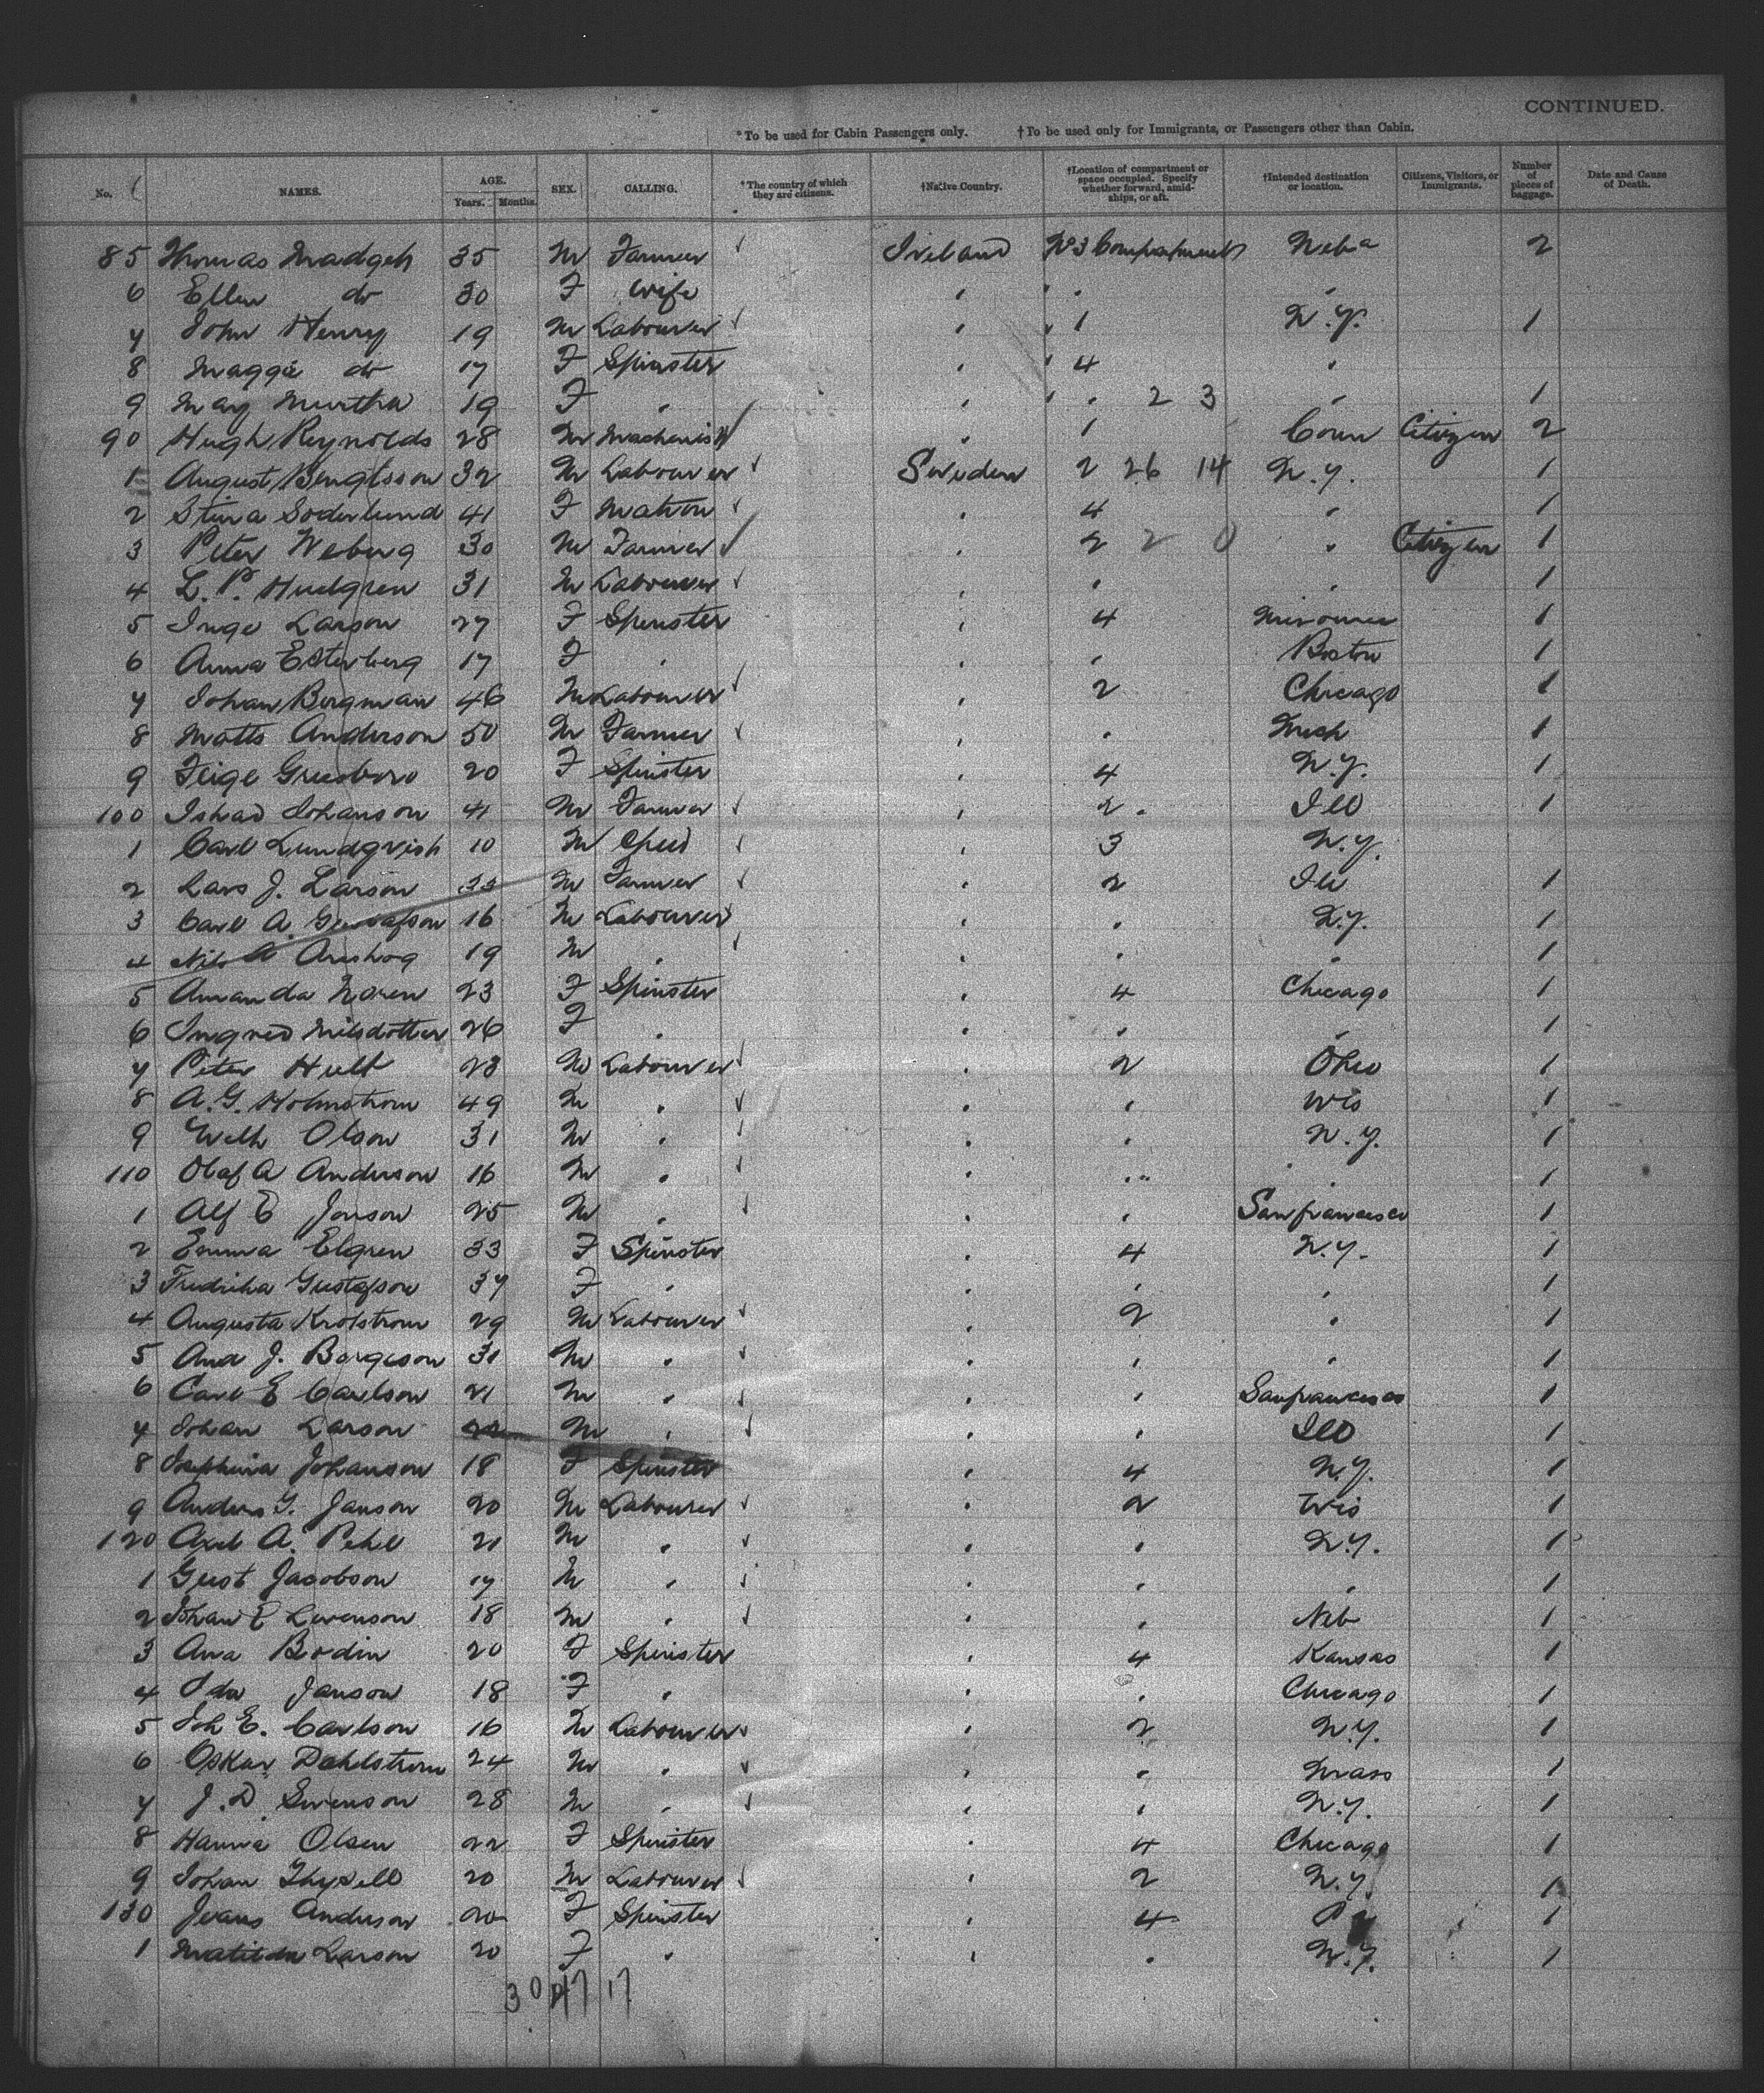 CONTINUED.
*To be used for Cabin Passengers only. †To be used only for Immigrants, or Passengers other than Cabin.
No. NAMES. AGE. Years. Months. SEX. CALLING. *The country of which they are citizens. †Native Country. †Location of compartment or space occupied. Specify whether forward, amidships, or aft. †Intended destination or location. Citizens, Visitors, or Immigrants. Number of pieces of baggage. Date and Cause of Death.
85 Thomas Madgeh 35 M Farmer Ireland No 3 Compartment Neba 2
6 Ellen do 30 F Wife " " " "
7 John Henry 19 M Labourer " " 1 N.Y. 1
8 Maggie do 17 F Spinster " " 4 "
9 May Murtha 19 F " " " " 2 3 " 1
90 Hugh Reynolds 28 M Machenist " 1 Conn Citizen 2
1 August Bengtsson 32 M Labourer Sweden 2 26 14 N.Y. 1
2 Stina Soderlund 41 F Matron " 4 " 1
3 Peter Weburg 30 M Farmer " 2 2 0 " Citizen 1
4 L. P. Hudgren 31 M Labourer " " " 1
5 Inge Larson 27 F Spinster " 4 1
6 Anna Esterberg 17 F " " " Boston 1
7 Johan Bergman 46 M Labourer " 2 Chicago 1
8 Matts Anderson 50 M Farmer " " Mich 1
9 Feige 20 F Spinster " 4 N.Y. 1
100 Johanson 41 M Farmer " 2 Ill 1
1 Carl Lundqvish 10 M Child " 3 N.Y.
2 Lars J. Larson 33 M Farmer " 2 Ill 1
3 Carl A. Gustafson 16 M Labourer " " N.Y. 1
4 Nils A 19 M " " " " 1
5 Amanda Noren 23 F Spinster " 4 Chicago 1
6 Ingred Nilsdotter 26 F " " " " 1
7 Peter Hult 23 M Labourer " 2 Ohio 1
8 A. G. Holmstrom 49 M " " " Wis 1
9 Wilh Olson 31 M " " " N.Y. 1
110 Olaf A Anderson 16 M " " " " 1
1 Alf E Jonson 25 M " " " Sanfrancisco 1
2 Emma Elgren 33 F Spinster " 4 N.Y. 1
3 Fredrika Gustafson 37 F " " " " 1
4 Augusta Krolstrom 29 M Labourer " 2 " 1
5 And J. Borgeson 31 M " " " " 1
6 Carl E Carlson 21 M " " " Sanfrancisco 1
7 Johan Larson 22 M " " " Ill 1
8 Josephina Johanson 18 F Spinster " 4 N.Y. 1
9 Anders G. Janson 20 M Labourer " 2 Wis 1
120 Axel A. Pehl 21 M " " " N.Y. 1
1 Gust Jacobson 17 M " " " " 1
2 Johan E Swenson 18 M " " " Neb 1
3 Ana Bodin 20 F Spinster " 4 Kansas 1
4 Ida Janson 18 F " " " Chicago 1
5 Joh E. Carlson 16 M Labourer " 2 N.Y. 1
6 Oskar Dahlstrom 24 M " " " Mass 1
7 J. D. Swenson 28 M " " " N.Y. 1
8 Hanna Olsen 22 F Spinster " 4 Chicago 1
9 Johan Thysell 20 M Labourer " 2 N.Y. 1
130 Anderson 20 F Spinster " 4 1
1 Matilda Larson 20 F " " " N.Y. 1
30 17 17